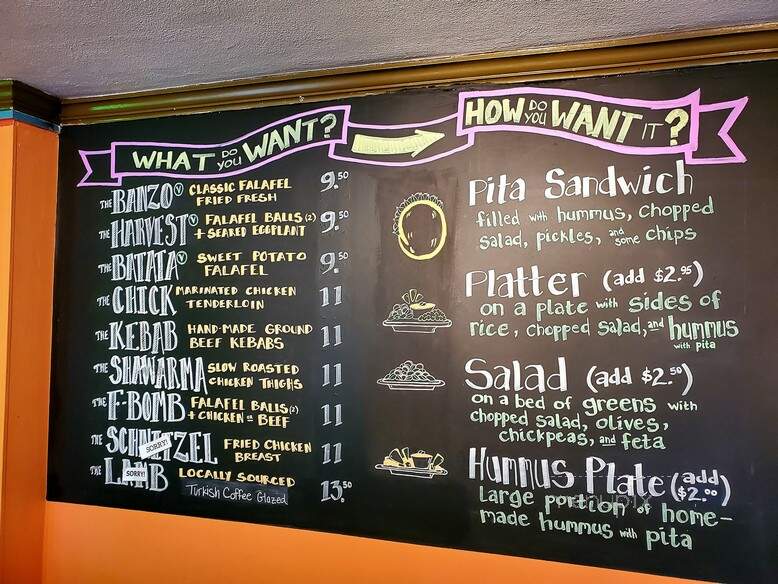 WHAT DO YOU WANT?
THE BANZO V CLASSIC FALAFEL
FRIED FRESH 9.50
THE HARVEST V FALAFEL BALLS (2)
+ SEARED EGGPLANT 9.50
THE BATATA V SWEET POTATO
FALAFEL 9.50
THE CHICK MARINATED CHICKEN
TENDERLOIN 11
THE KEBAB HAND-MADE GROUND
BEEF KEBABS 11
THE SHAWARMA SLOW ROASTED
CHICKEN THIGHS 11
THE F-BOMB FALAFEL BALLS (2)
+ CHICKEN OR BEEF 11
THE SCHNITZEL FRIED CHICKEN
BREAST 11
SORRY!
THE LAMB LOCALLY SOURCED
SORRY!
Turkish Coffee Glazed 13.50
HOW DO YOU WANT IT?
Pita Sandwich
filled with hummus, chopped
salad, pickles, and some chips
Platter (add $2.95)
on a plate with sides of
rice, chopped salad, and hummus
with pita
Salad (add $2.50)
on a bed of greens with
chopped salad, olives,
chickpeas, and feta
Hummus Plate (add $2.00)
Large portion of home-
made hummus with pita